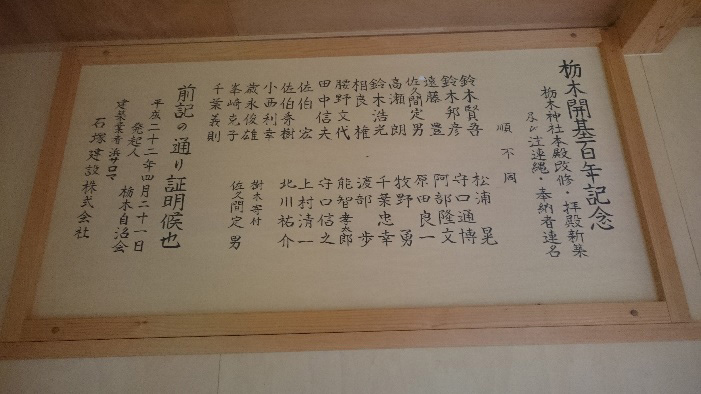 栃木開基百年記念
栃木神社本殿改修・拝殿新築
及び注連縄・奉納者連名
順不同
鈴木賢吾
鈴木邦彦
遠藤豊
佐久間定男
高瀬朗
鈴木浩光
相良権
腰野文代
田中信夫
佐伯宏
佐伯秀樹
小西利幸
歳永俊雄
峯崎克子
千葉義則
松浦晃
守口通博
阿部隆文
原田良一
牧野勇
千葉忠幸
渡部歩
能智幸太郎
守口信之
上村清一
北川祐介
樹木寄付
佐久間定男
前記の通り証明候也
平成二十二年四月二十一日
発起人 栃木自治会
建築業者 浜サロマ
石塚建設株式会社